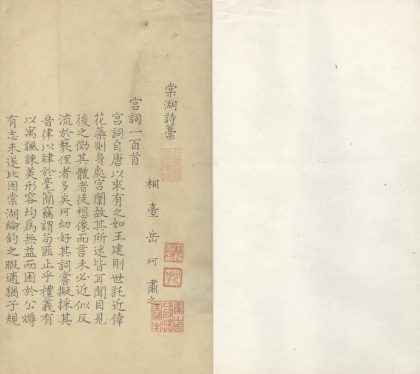 棠湖詩藁
相臺岳珂肅之
宮詞一百首
宮詞自唐以來有之如王建則世託近倖
花蘂則身處宮闈故其所述皆耳聞目見
後之倣其體者徒想像而言未必近似反
流於褻俚者多矣珂幼好其詞嘗擬採其
音律以肆於毫簡竊謂苟匪止乎禮義有
以寓諷諫美形容均為無益而困於公
有志未遂比因棠湖綸釣之暇適猶子規